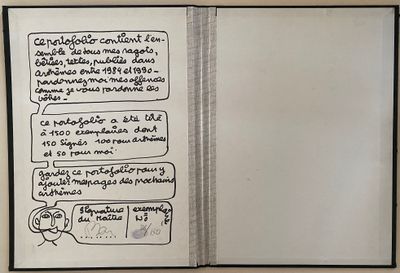 ce portofolio contient l'en-
semble de tous mes ragots,
bêtises, textes, publiés dans
arthèmes entre 1984 et 1990-
pardonnez moi mes offences
comme je vous pardonne les
vôtres-
ce portofolio a été tiré
à 1500 exemplaires dont
150 signés 100 pour arthèmes
et 50 pour moi.
gardez ce portofolio pour y
ajouter mes pages des prochains
arthèmes
signature
du Maître
exemplaire
No
/150